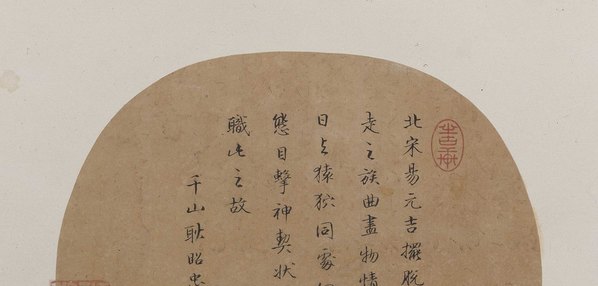 北宋易元吉擺脫
走之族曲盡物情
日与猿狖同處
態目擊神契狀
職此之故
千山耿昭忠